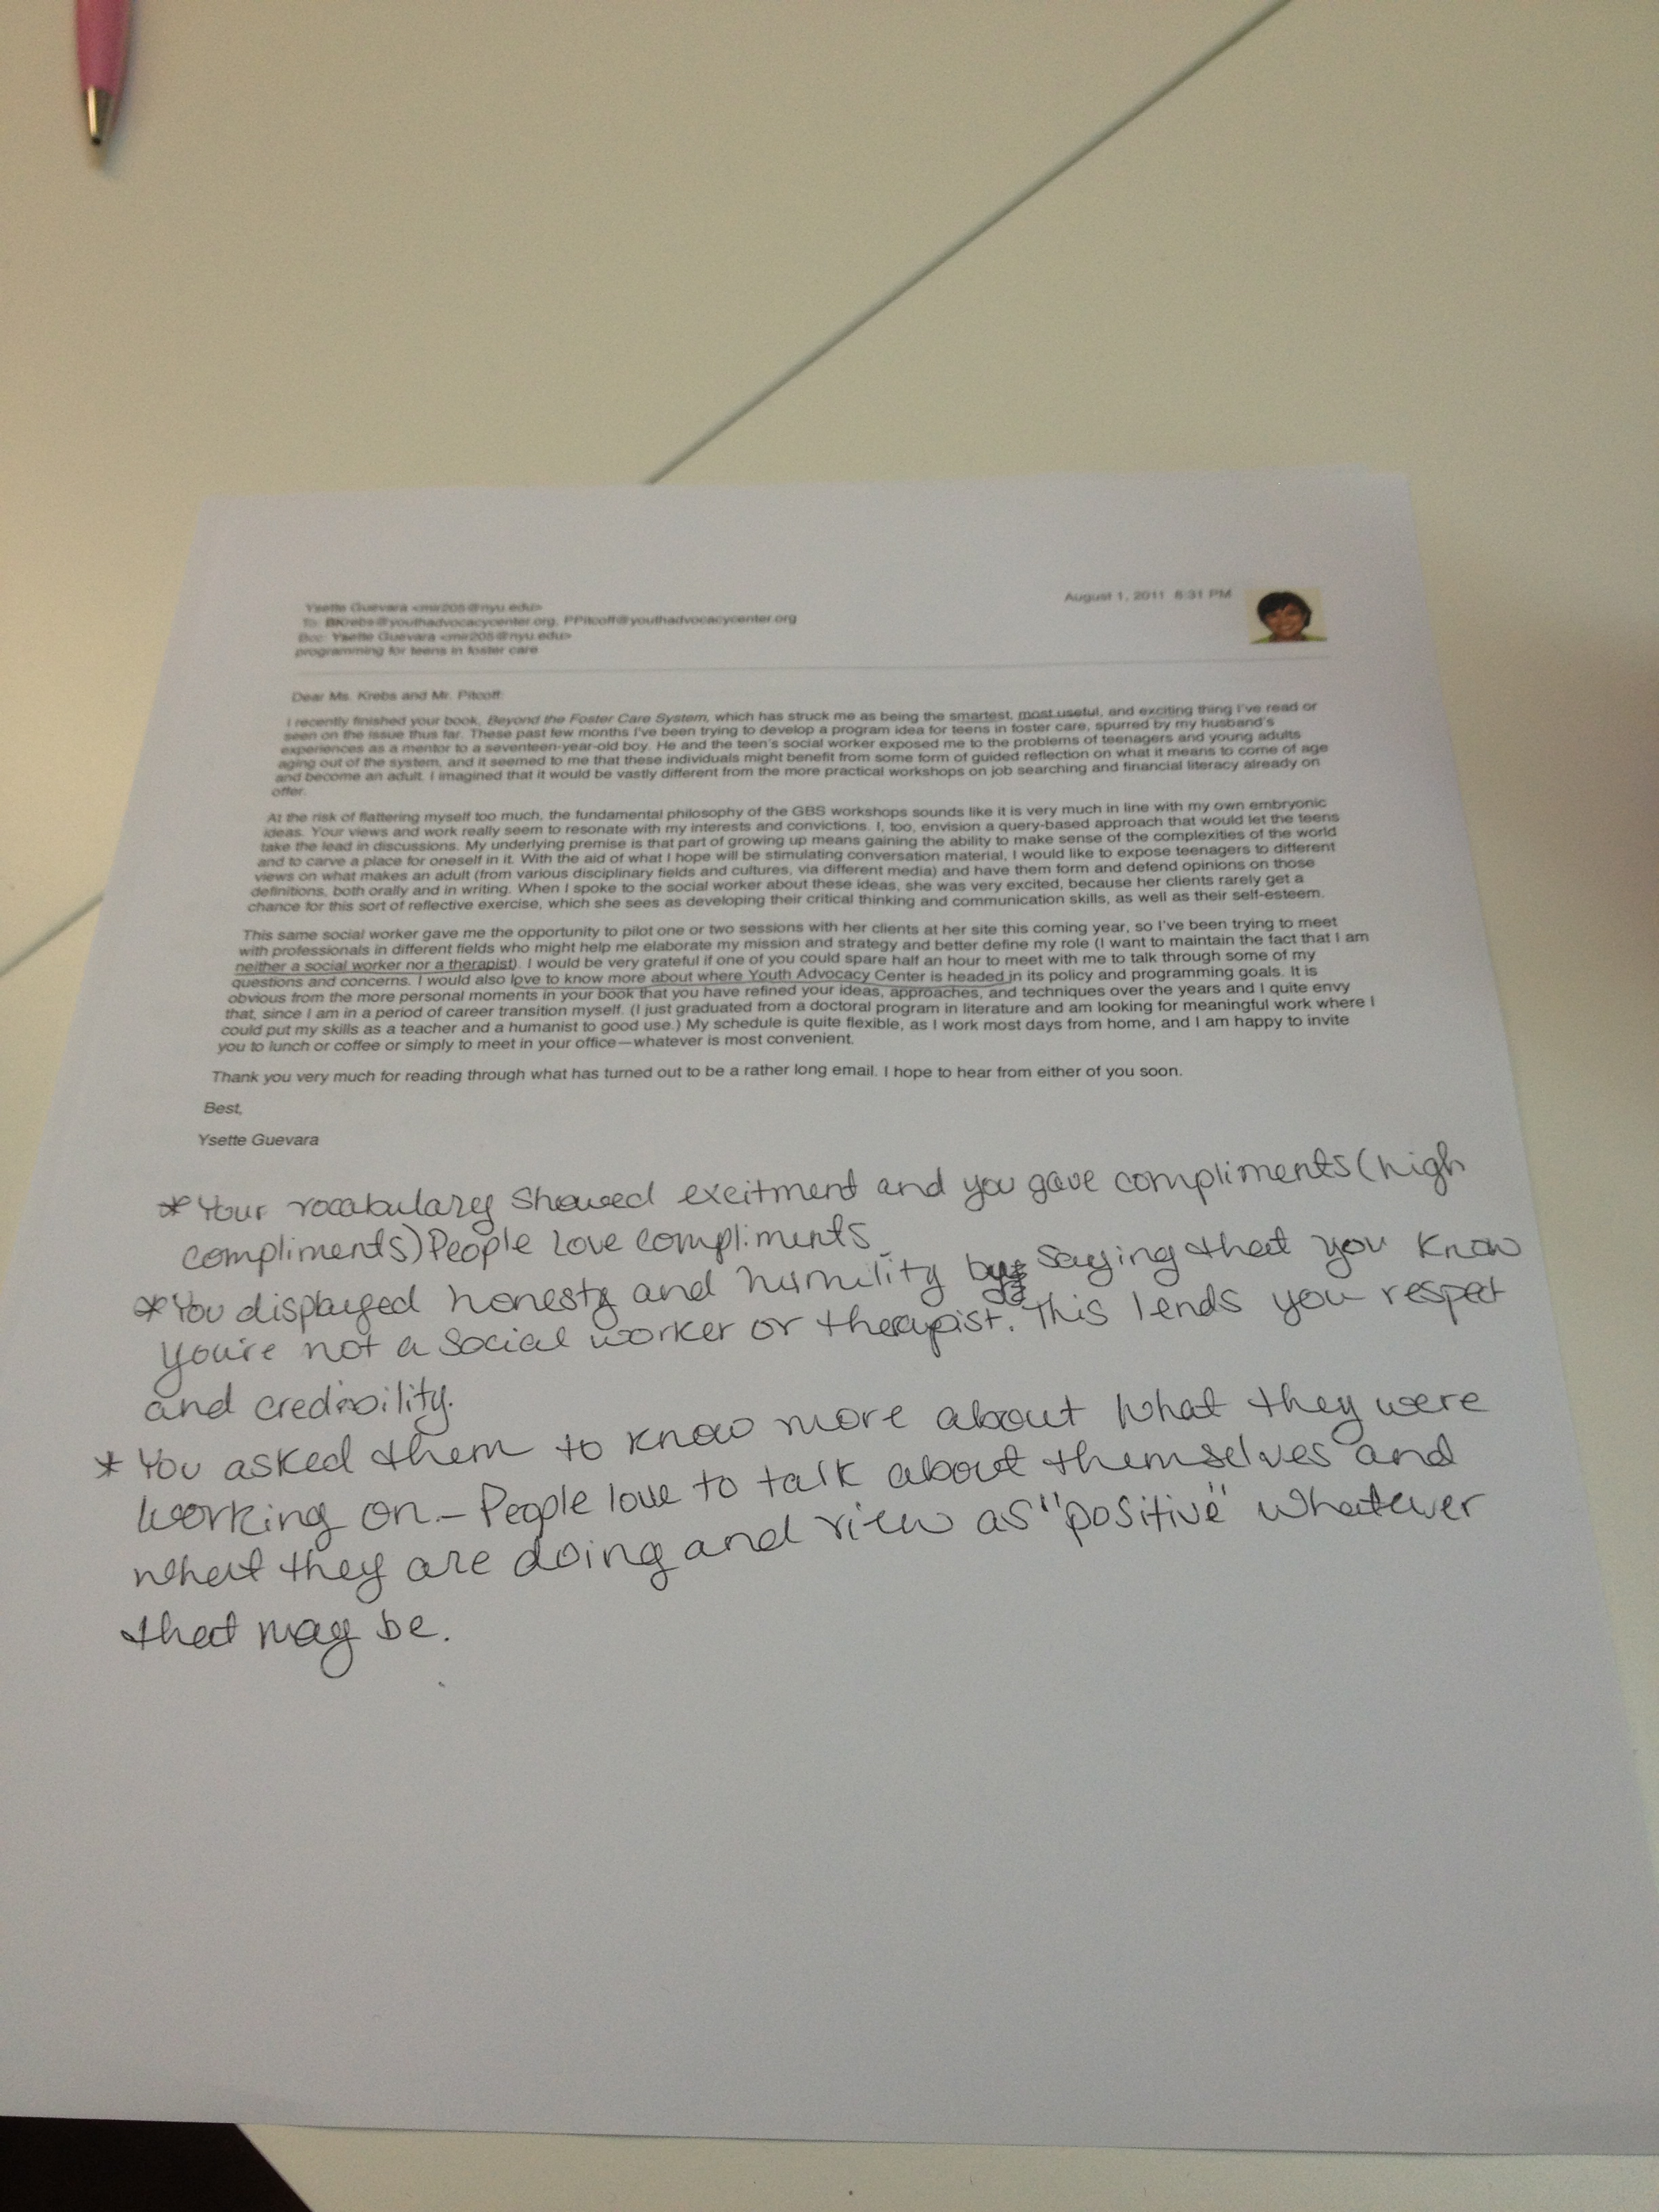 Ysette Guevara <mir205@nyu.edu>
August 1, 2011 6:31 PM
To: BKrebs@youthadvocacycenter.org, PPitcoff@youthadvocacycenter.org
Bcc: Ysette Guevara <mir205@nyu.edu>
programming for teens in foster care
Dear Ms. Krebs and Mr. Pitcoff:
I recently finished your book, Beyond the Foster Care System, which has struck me as being the smartest, most useful, and exciting thing I've read or
seen on the issue thus far. These past few months I've been trying to develop a program idea for teens in foster care, spurred by my husband's
experiences as a mentor to a seventeen-year-old boy. He and the teen's social worker exposed me to the problems of teenagers and young adults
aging out of the system, and it seemed to me that these individuals might benefit from some form of guided reflection on what it means to come of age
and become an adult. I imagined that it would be vastly different from the more practical workshops on job searching and financial literacy already on
offer.
At the risk of flattering myself too much, the fundamental philosophy of the GBS workshops sounds like it is very much in line with my own embryonic
ideas. Your views and work really seem to resonate with my interests and convictions. I, too, envision a query-based approach that would let the teens
take the lead in discussions. My underlying premise is that part of growing up means gaining the ability to make sense of the complexities of the world
and to carve a place for oneself in it. With the aid of what I hope will be stimulating conversation material, I would like to expose teenagers to different
views on what makes an adult (from various disciplinary fields and cultures, via different media) and have them form and defend opinions on those
definitions, both orally and in writing. When I spoke to the social worker about these ideas, she was very excited, because her clients rarely get a
chance for this sort of reflective exercise, which she sees as developing their critical thinking and communication skills, as well as their self-esteem.
This same social worker gave me the opportunity to pilot one or two sessions with her clients at her site this coming year, so I've been trying to meet
with professionals in different fields who might help me elaborate my mission and strategy and better define my role (I want to maintain the fact that I am
neither a social worker nor a therapist). I would be very grateful if one of you could spare half an hour to meet with me to talk through some of my
questions and concerns. I would also love to know more about where Youth Advocacy Center is headed in its policy and programming goals. It is
obvious from the more personal moments in your book that you have refined your ideas, approaches, and techniques over the years and I quite envy
that, since I am in a period of career transition myself. (I just graduated from a doctoral program in literature and am looking for meaningful work where I
could put my skills as a teacher and a humanist to good use.) My schedule is quite flexible, as I work most days from home, and I am happy to invite
you to lunch or coffee or simply to meet in your office—whatever is most convenient.
Thank you very much for reading through what has turned out to be a rather long email. I hope to hear from either of you soon.
Best,
Ysette Guevara
* Your vocabulary showed exeitment and you gave compliments (high
compliments) People love compliments
* You displayed honesty and humility by saying that you know
you're not a social worker or therapist. This lends you respect
and credibility.
* You asked them to know more about what they were
working on. – People love to talk about themselves and
what they are doing and view as "positive" whatever
that may be.